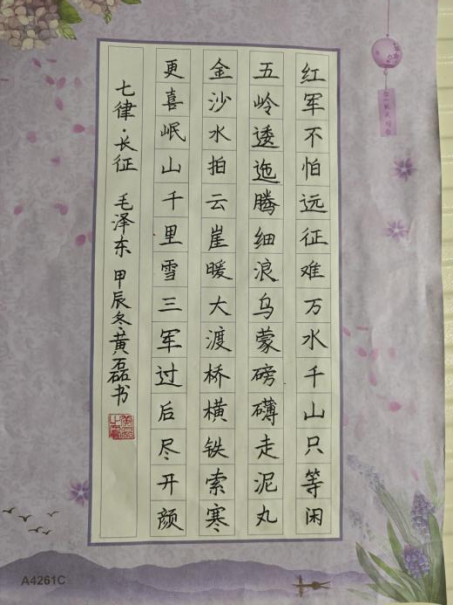 红军不怕远征难万水千山只等闲
五岭逶迤腾细浪乌蒙磅礴走泥丸
金沙水拍云崖暖大渡桥横铁索寒
更喜岷山千里雪三军过后尽开颜
七律·长征 毛泽东 甲辰冬黄磊书
A4261C